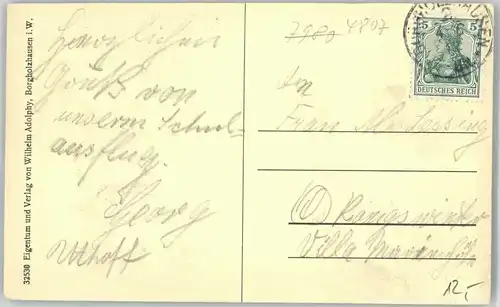 Herzlichen
Gruß von
unserm Schul-
ausflug.
Georg
Uthoff
32530 Eigentum und Verlag von Wilhelm Adolphy, Borgholzhausen i.W.
7980 4807
5 5
DEUTSCHES REICH
An
Frau
Königswinter
Villa
12,-